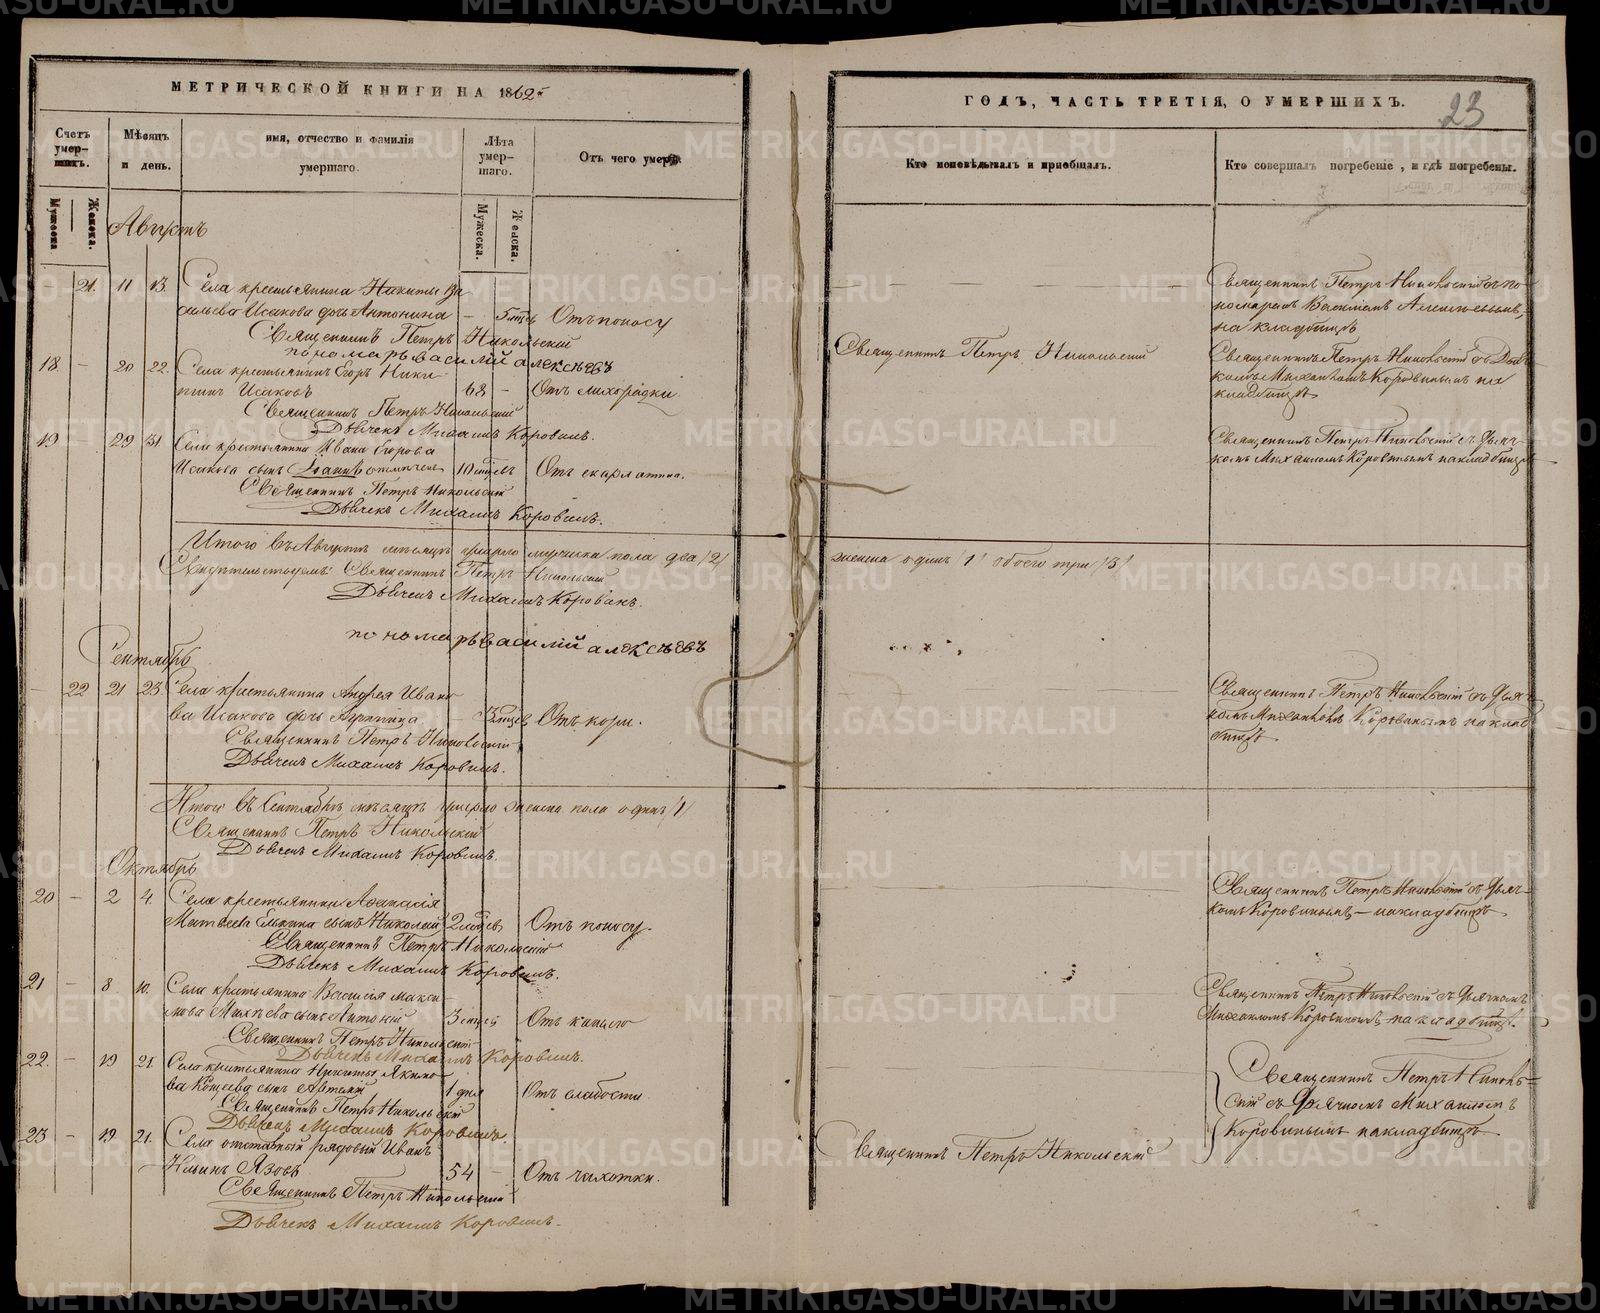 МЕТРИЧЕСКОЙ КНИГИ НА 1862й
Счетъ умер-шихъ.
Мѣсяцъ и день.
имя, отчество и фамилія умершаго.
Лѣта умер-шаго.
Отъ чего умеръ.
Мужеска
Женска.
Мужеска.
Женска.
Августъ
21. 11 13. Села крестьянина Никиты Ва
сильева Исакова дчь Антонина — 5 мцъ Отъ поносу
Священникъ Петръ Никольскій
пономарь василій алексѣевъ
18 — 20 22. Села крестьянинъ Егоръ Ники
тинъ Исаковъ 68 — Отъ лихорадки
Священникъ Петръ Никольскій
Дьячекъ Михаилъ Коровинъ.
19 — 29 31. Села крестьянина Ивана Егорова
Исакова сынъ Іоаннъ 10 мцевъ Отъ скарлатина.
Священникъ Петръ Никольскій
Дьячекъ Михаилъ Коровинъ.
Итого въ Августѣ мѣсяцѣ умерло мужеска пола два /2/
Свидѣтельствуемъ: Священникъ Петръ Никольскій
Дьячекъ Михаилъ Коровинъ.
пономарь василій алексѣевъ
Сентябрь
— 22 21 23. Села крестьянина Андрея Ивано
ва Исакова дчь — 3 мцев Отъ кори.
Священникъ Петръ Никольскій
Дьячекъ Михаилъ Коровинъ.
Итого въ Сентябрѣ мѣсяцѣ умерло женска пола одинъ /1/
Священникъ Петръ Никольскій
Дьячекъ Михаилъ Коровинъ.
Октябрь
20 — 2 4. Села крестьянина Афанасія
Матвѣева Елькина сынъ Николай 2 мцев Отъ поносу.
Священникъ Петръ Никольскій
Дьячекъ Михаилъ Коровинъ.
21 — 8 10. Села крестьянина Василія Макси
мова сынъ Антоній 3 мцей Отъ кашлю
Священникъ Петръ Никольскій
Дьячекъ Михаилъ Коровинъ.
22. — 19 21. Села крестьянина Никиты Якимо
ва сынъ 1 дня Отъ слабости.
Священникъ Петръ Никольскій
Дьячекъ Михаилъ Коровинъ.
23 — 19 21. Села отставный рядовый Иванъ
Язовъ 54 — Отъ чахотки.
Священникъ Петръ Никольскій
Дьячекъ Михаилъ Коровинъ.
ГОДЪ, ЧАСТЬ ТРЕТІЯ, О УМЕРШИХЪ.
23
Кто исповѣдывалъ и пріобщалъ.
Кто совершалъ погребеніе, и гдѣ погребены.
Священникъ Петръ Никольскій съ по
номаремъ Василіемъ Алексѣевымъ,
на кладбищѣ
Священникъ Петръ Никольскій
Священникъ Петръ Никольскій съ Дьяч
комъ Михаиломъ Коровинымъ на
кладбищѣ
Священникъ Петръ Никольскій съ Дьяч
комъ Михаиломъ Коровинымъ на кладбищѣ
женска одинъ /1/ обоего три /3/
Священникъ Петръ Никольскій съ Дьяч
комъ Михаиломъ Коровинымъ на клад
бищѣ
Священникъ Петръ Никольскій съ Дьяч
комъ Коровинымъ — на кладбищѣ
Священникъ Петръ Никольскій съ Дьячкомъ
Михаиломъ Коровинымъ на кладбищѣ.
Священникъ Петръ Николь
скій съ Дьячкомъ Михаиломъ
Коровинымъ на кладбищѣ
Священникъ Петръ Никольскій
METRIKI.GASO-URAL.RU